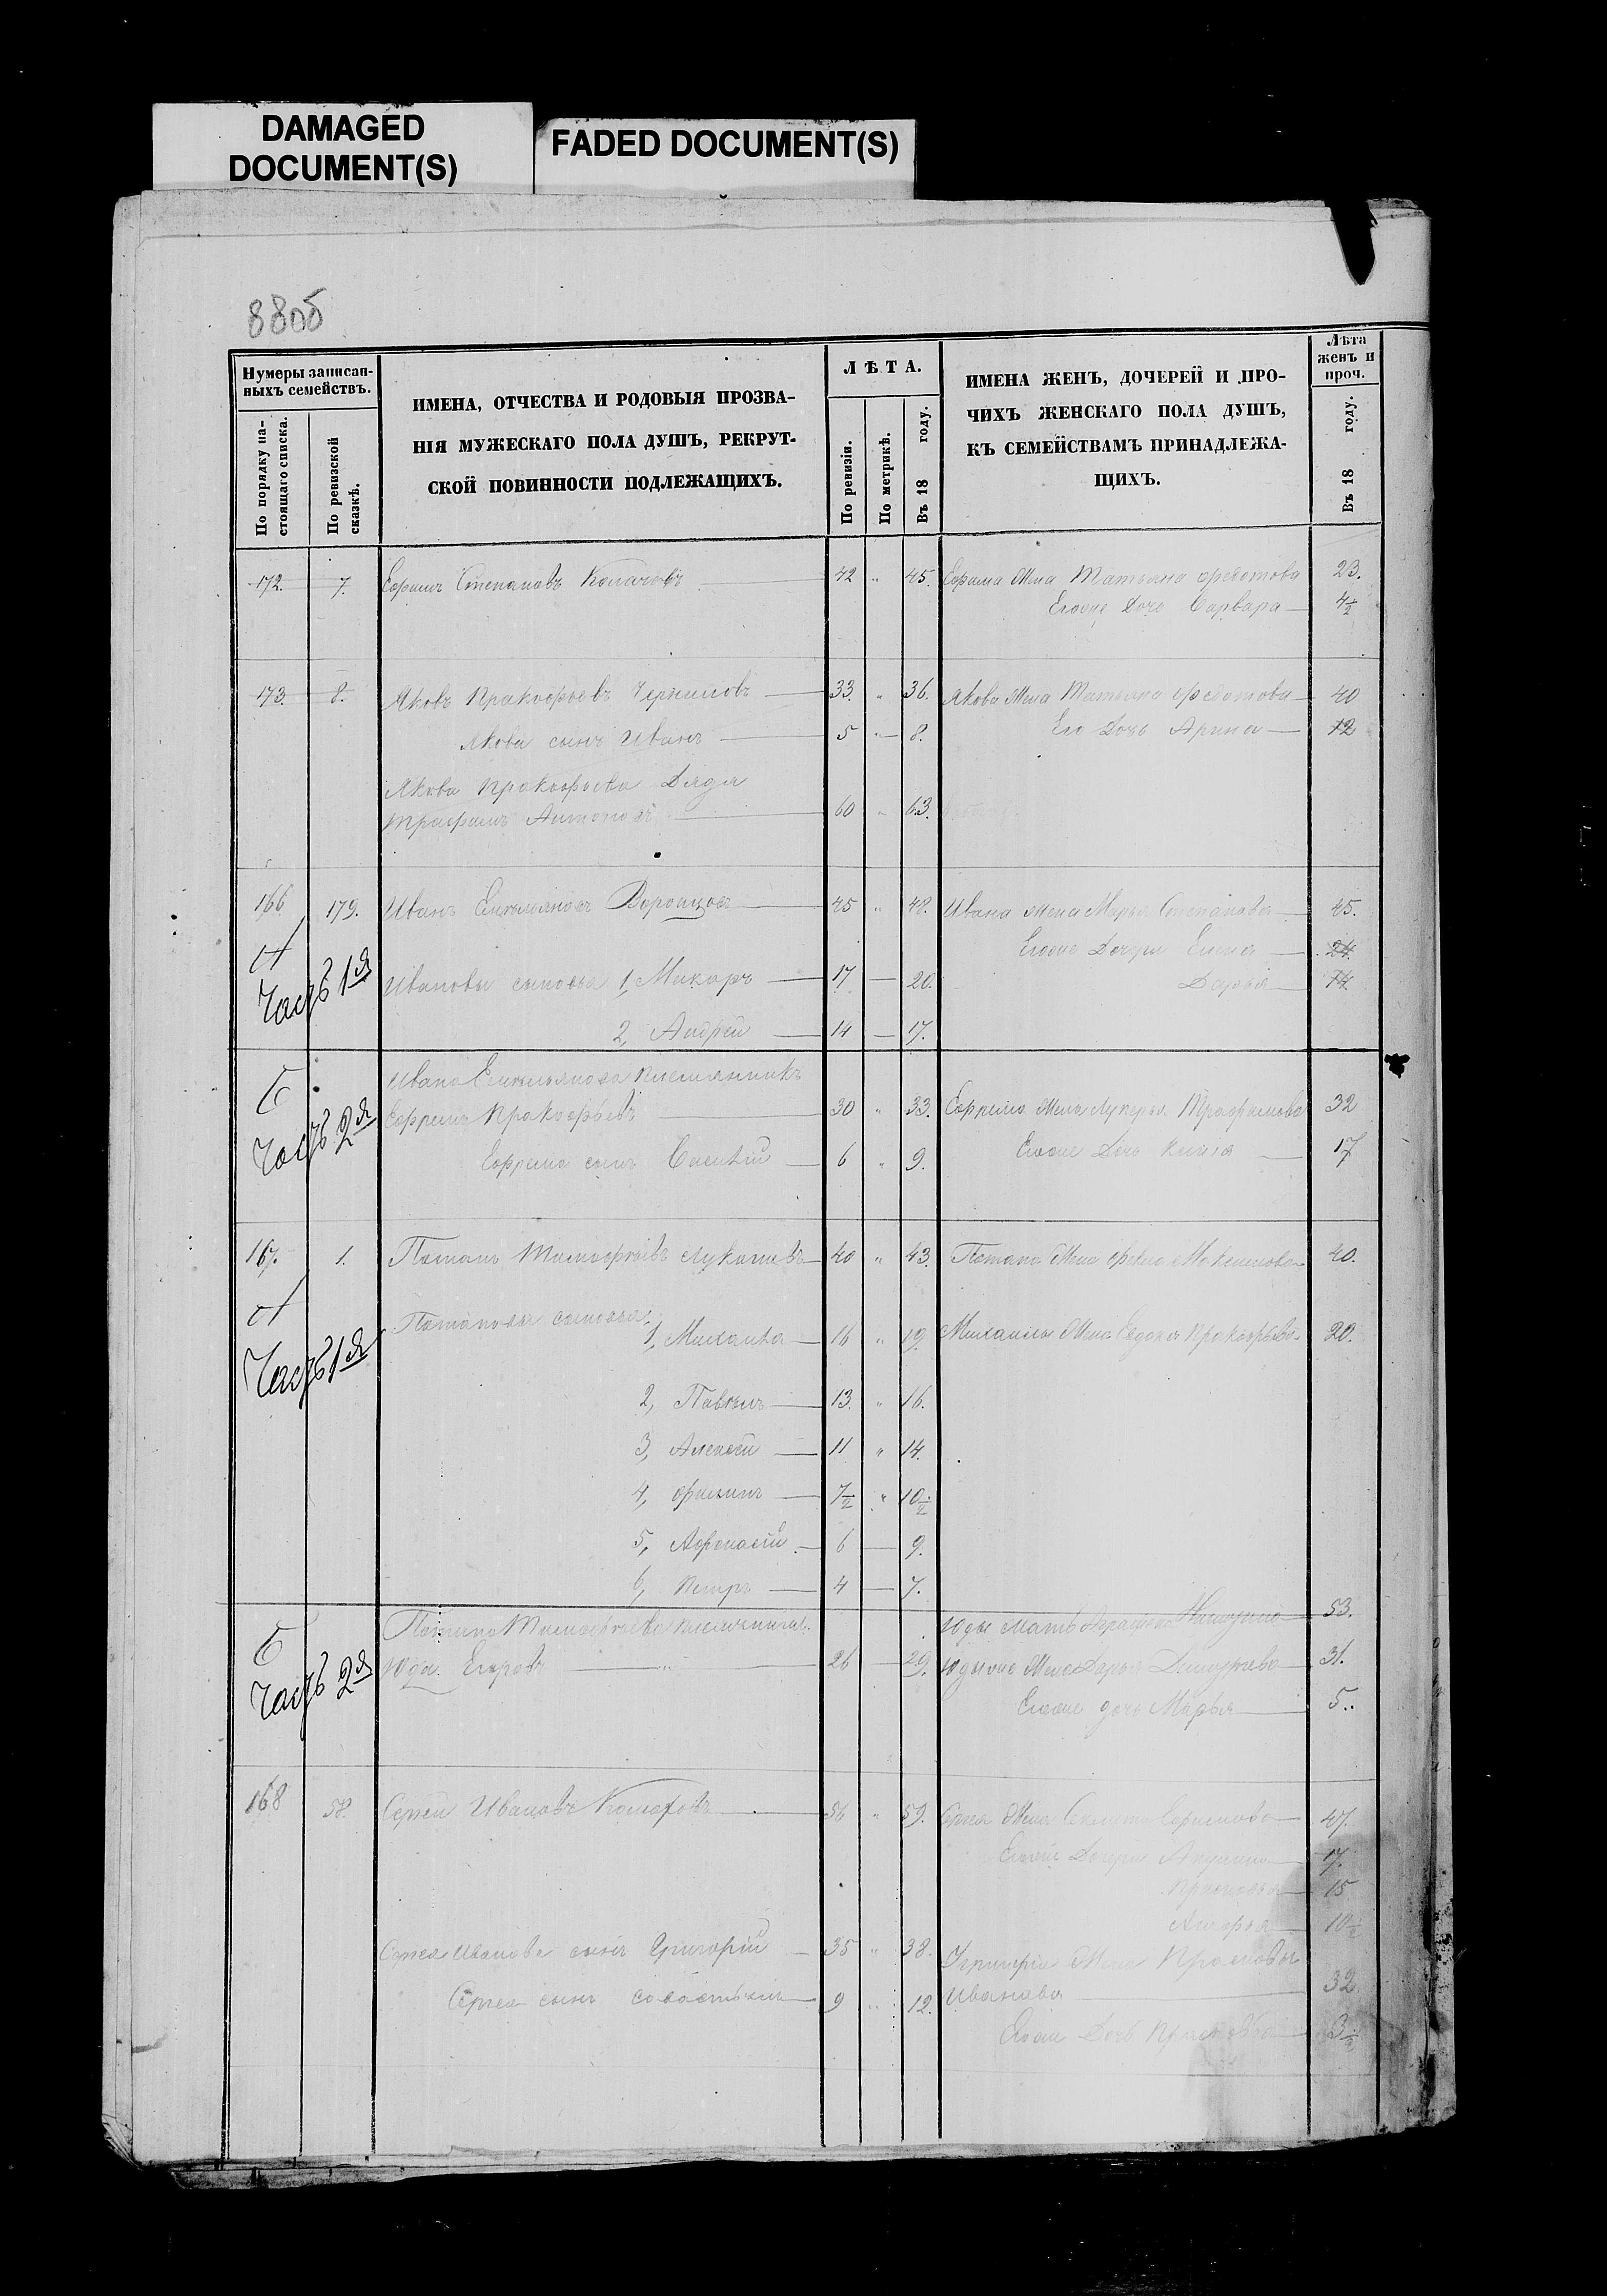 DAMAGED
DOCUMENT(S)
FADED DOCUMENT(S)
88об
Нумеры записан-
ныхъ семействъ.
По порядку на-
стоящаго списка.
По ревизской
сказкѣ.
ИМЕНА, ОТЧЕСТВА И РОДОВЫЯ ПРОЗВА-
НІЯ МУЖЕСКАГО ПОЛА ДУШЪ, РЕКРУТ-
СКОЙ ПОВИННОСТИ ПОДЛЕЖАЩИХЪ.
ЛѢТА.
По ревизіи.
По метрикѣ.
Въ 18 году.
ИМЕНА ЖЕНЪ, ДОЧЕРЕЙ И ПРО-
ЧИХЪ ЖЕНСКАГО ПОЛА ДУШЪ,
КЪ СЕМЕЙСТВАМЪ ПРИНАДЛЕЖА-
ЩИХЪ.
Лѣта
женъ и
проч.
Въ 18 году.
172. 7. Ефимъ Степановъ 42 " 45. Ефима жена Татьяна Федотова 23.
Егоже дочь Варвара 4½
173. 8. Яковъ Пракофьевъ 33. " 36. Якова жена Татьяна Федотова 40
Якова сынъ Иванъ 5 " 8. Его дочь Арина 12
Якова Прокофьева дядя
Трафимъ Антоновъ 60 " 63.
166 179. Иванъ Емельяновъ Воронцовъ 45 " 48. Ивана жена Марья Степанова 45.
Егоже дочери Елена 24.
А Часть 1я Ивановы сыновья 1, Макаръ 17 20. Дарья 14
2, Андрей 14 17.
Б Ивана Емельянова племянникъ
Часть 2я Ефремъ Пракофьевъ 30 " 33. Ефрема жена Лукерья Трафимова 32
Ефрема сынъ 6 " 9. Егоже дочь 17
167. 1. Потапъ Тимофѣевъ 40 " 43. Потапа жена Фекла Максимова 40.
А Потаповы сыновья:
Часть 1я 1, Михаила 16 " 19. Михаилы жена Прокофьева 20.
2, Павелъ 13. " 16.
3, Алексѣй 11 " 14.
4, 7½ " 10½
5, Афонасій 6 9.
6, Петръ 4 7.
Б Потапа Тимофѣева племянникъ Юды мать 53.
Часть 2я Юда Егоровъ 26 29. Юды жена Дарья 31.
Егоже дочь Марья 5.
168 58. Сергей Ивановъ 56 " 59. жена 47.
Егоже дочери 17.
15
10½
Сергея Иванова сынъ Григорій 35 " 38. жена Прасковья
Сергея сынъ 9 " 12. Иванова 32
Егоже дочь 3½